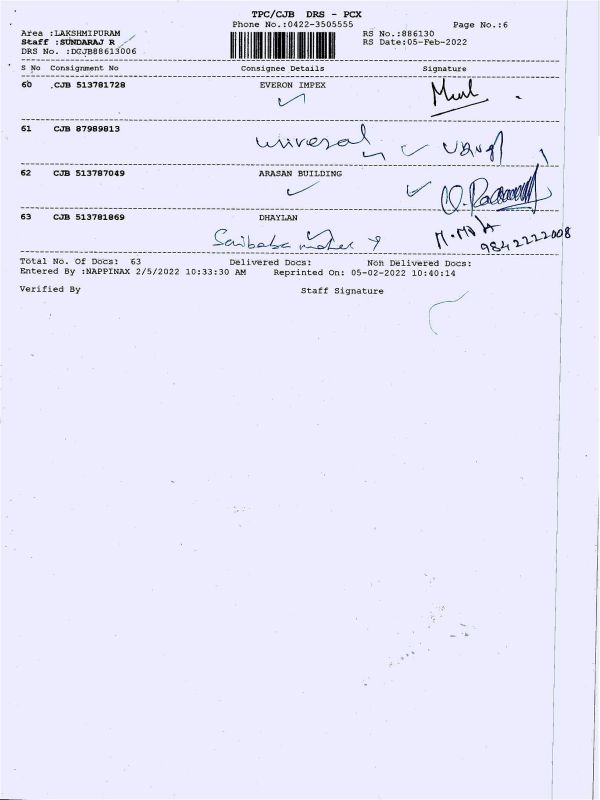 TPC/CJB DRS - PCX
Phone No.:0422-3505555 Page No.:6
Area :LAKSHMIPURAM RS No.:886130
Staff :SUNDARAJ R RS Date:05-Feb-2022
DRS No. :DGJB88613006
S No Consignment No Consignee Details Signature
60 CJB 513781728 EVERON IMPEX
61 CJB 87989813 universal
62 CJB 513787049 ARASAN BUILDING
63 CJB 513781869 DHAYLAN
Saibaba 9842222008
Total No. Of Docs: 63 Delivered Docs: Non Delivered Docs:
Entered By :NAPPINAX 2/5/2022 10:33:30 AM Reprinted On: 05-02-2022 10:40:14
Verified By Staff Signature